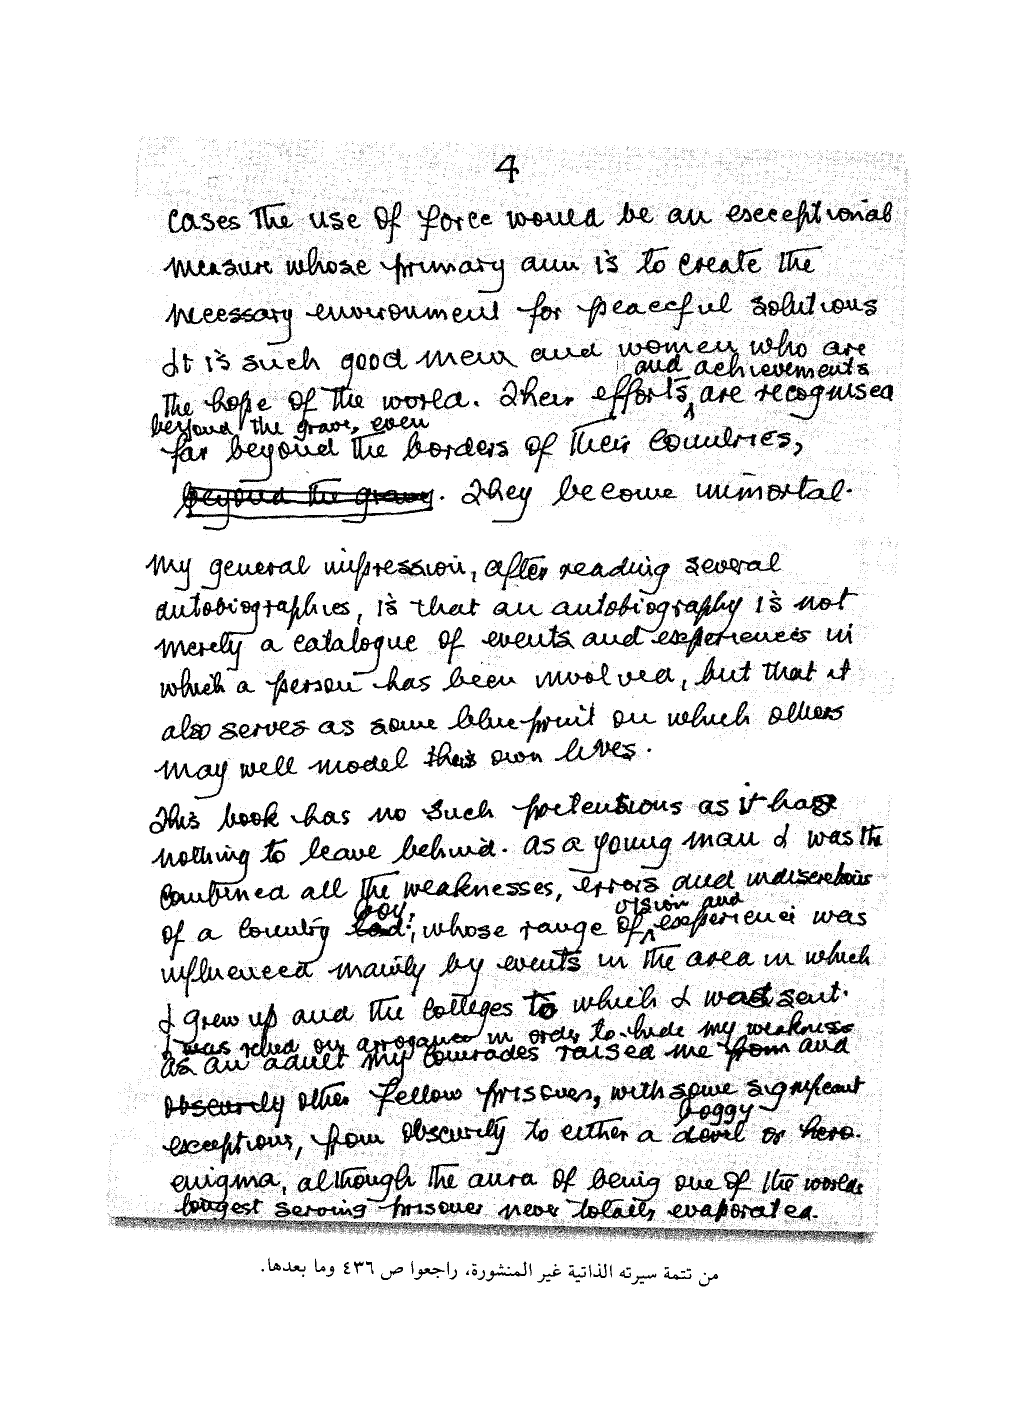 4
cases the use of force would be an exceptional
measure whose primary aim is to create the
necessary environment for peaceful solutions
It is such good men and women who are
and achievements
the hope of the world. Their efforts ^ are recognised
beyond the grave, even
far beyond the borders of their countries,
beyond the grave. They become immortal.
My general impression, after reading several
autobiographies, is that an autobiography is not
merely a catalogue of events and experiences in
which a person has been involved, but that it
also serves as some blueprint on which others
may well model their own lives.
This book has no such pretentions as it has
nothing to leave behind. As a young man I was the
combined all the weaknesses, errors and indiscretions
boy, vision and
of a country lad, whose range of ^ experience was
influenced mainly by events in the area in which
I grew up and the colleges to which I was sent.
I was relied on arrogance in order to hide my weakness
As an adult my comrades raised me from and
obscurely other fellow prisoners, with some significant
boggy
exceptions, from obscurity to either a devil or hero.
enigma, although the aura of being one of the worlds
longest serving prisoner never totally evaporated.
من تتمة سيرته الذاتية غير المنشورة، راجعوا ص ٤٣٦ وما بعدها.